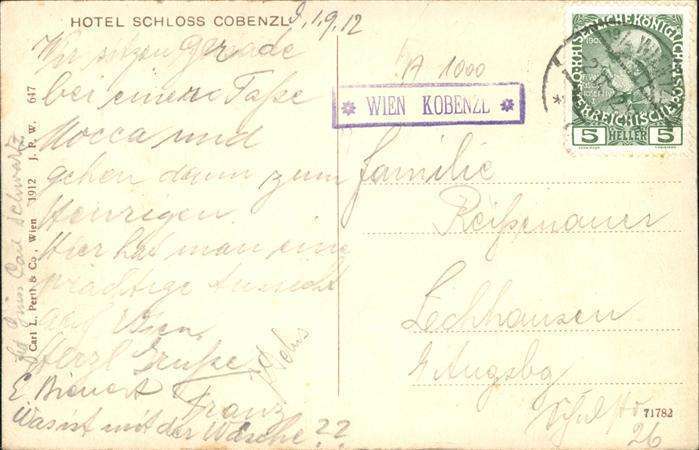 HOTEL SCHLOSS COBENZL
9.1.9.12
Wir sitzen gerade
bei einer Taße
Mocca und
gehen dann zum
Heurigen
Hier hat man eine
prächtige Aussicht
auf Wien.
Herzl Grüße
Franz
E. Bienert
Was ist mit der Wäsche??
Carl Schwartz
Carl L. Pertl & Co, Wien 1912 J. P. W. 647
A 1000
WIEN KOBENZL
5 HELLER 5
Familie
Reißenauer
Lechhausen
Augsbg
Schulstr
26
71782